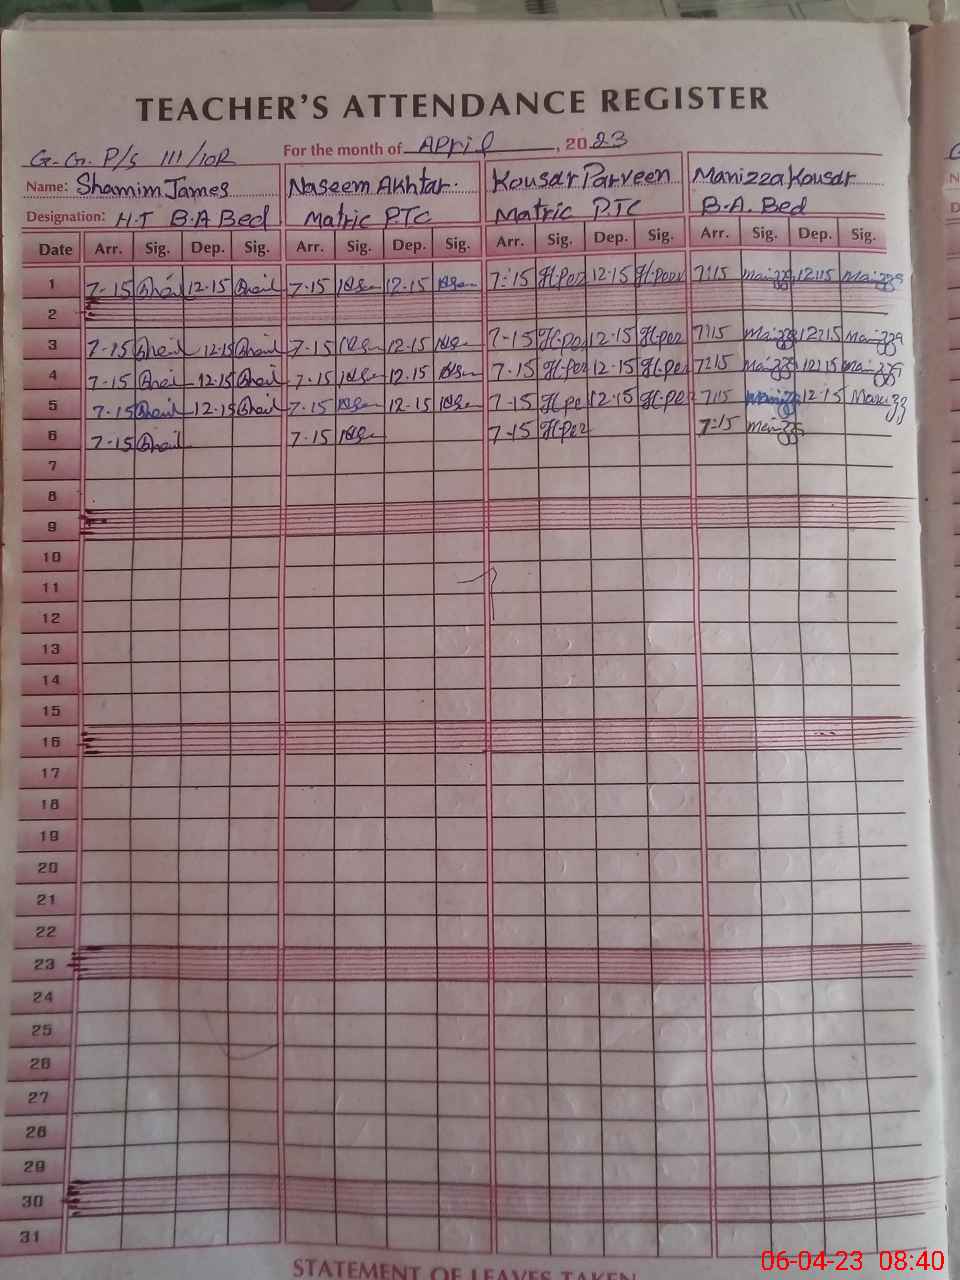 TEACHER'S ATTENDANCE REGISTER
G.G. P/S 111/10R For the month of April, 2023
Name: Shamim James Naseem Akhtar. Kousar Parveen Manizza Kousar
Designation: H.T B.A Bed Matric PTC Matric PTC B.A. Bed
Date Arr. Sig. Dep. Sig. Arr. Sig. Dep. Sig. Arr. Sig. Dep. Sig. Arr. Sig. Dep. Sig.
1 7-15 12-15 7-15 12-15 7-15 12-15 7:15 12:15
2
3 7-15 12-15 7-15 12-15 7-15 12-15 7:15 12:15
4 7-15 12-15 7-15 12-15 7-15 12-15 7:15 12:15
5 7-15 12-15 7-15 12-15 7-15 12-15 7:15 12:15
6 7-15 7-15 7-15 7:15
7
8
9
10
11
12
13
14
15
16
17
18
19
20
21
22
23
24
25
26
27
28
29
30
31
STATEMENT OF LEAVES TAKEN
06-04-23 08:40